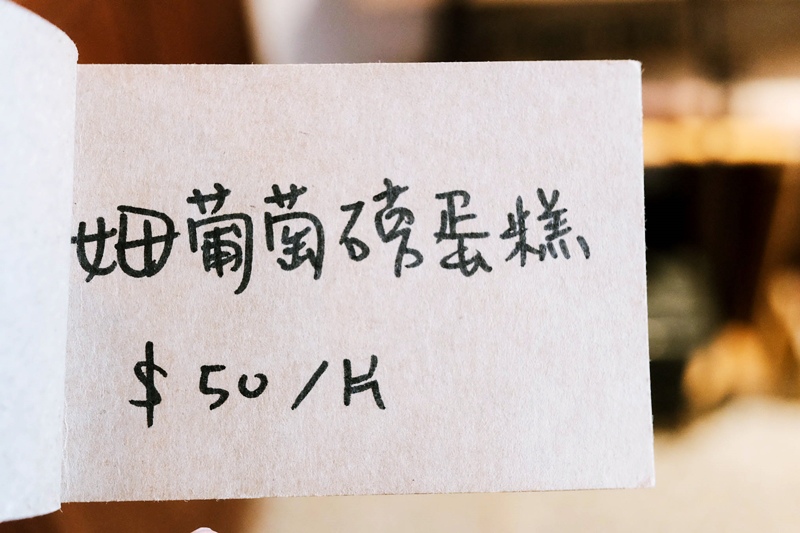 姆葡萄磅蛋糕
$50/片